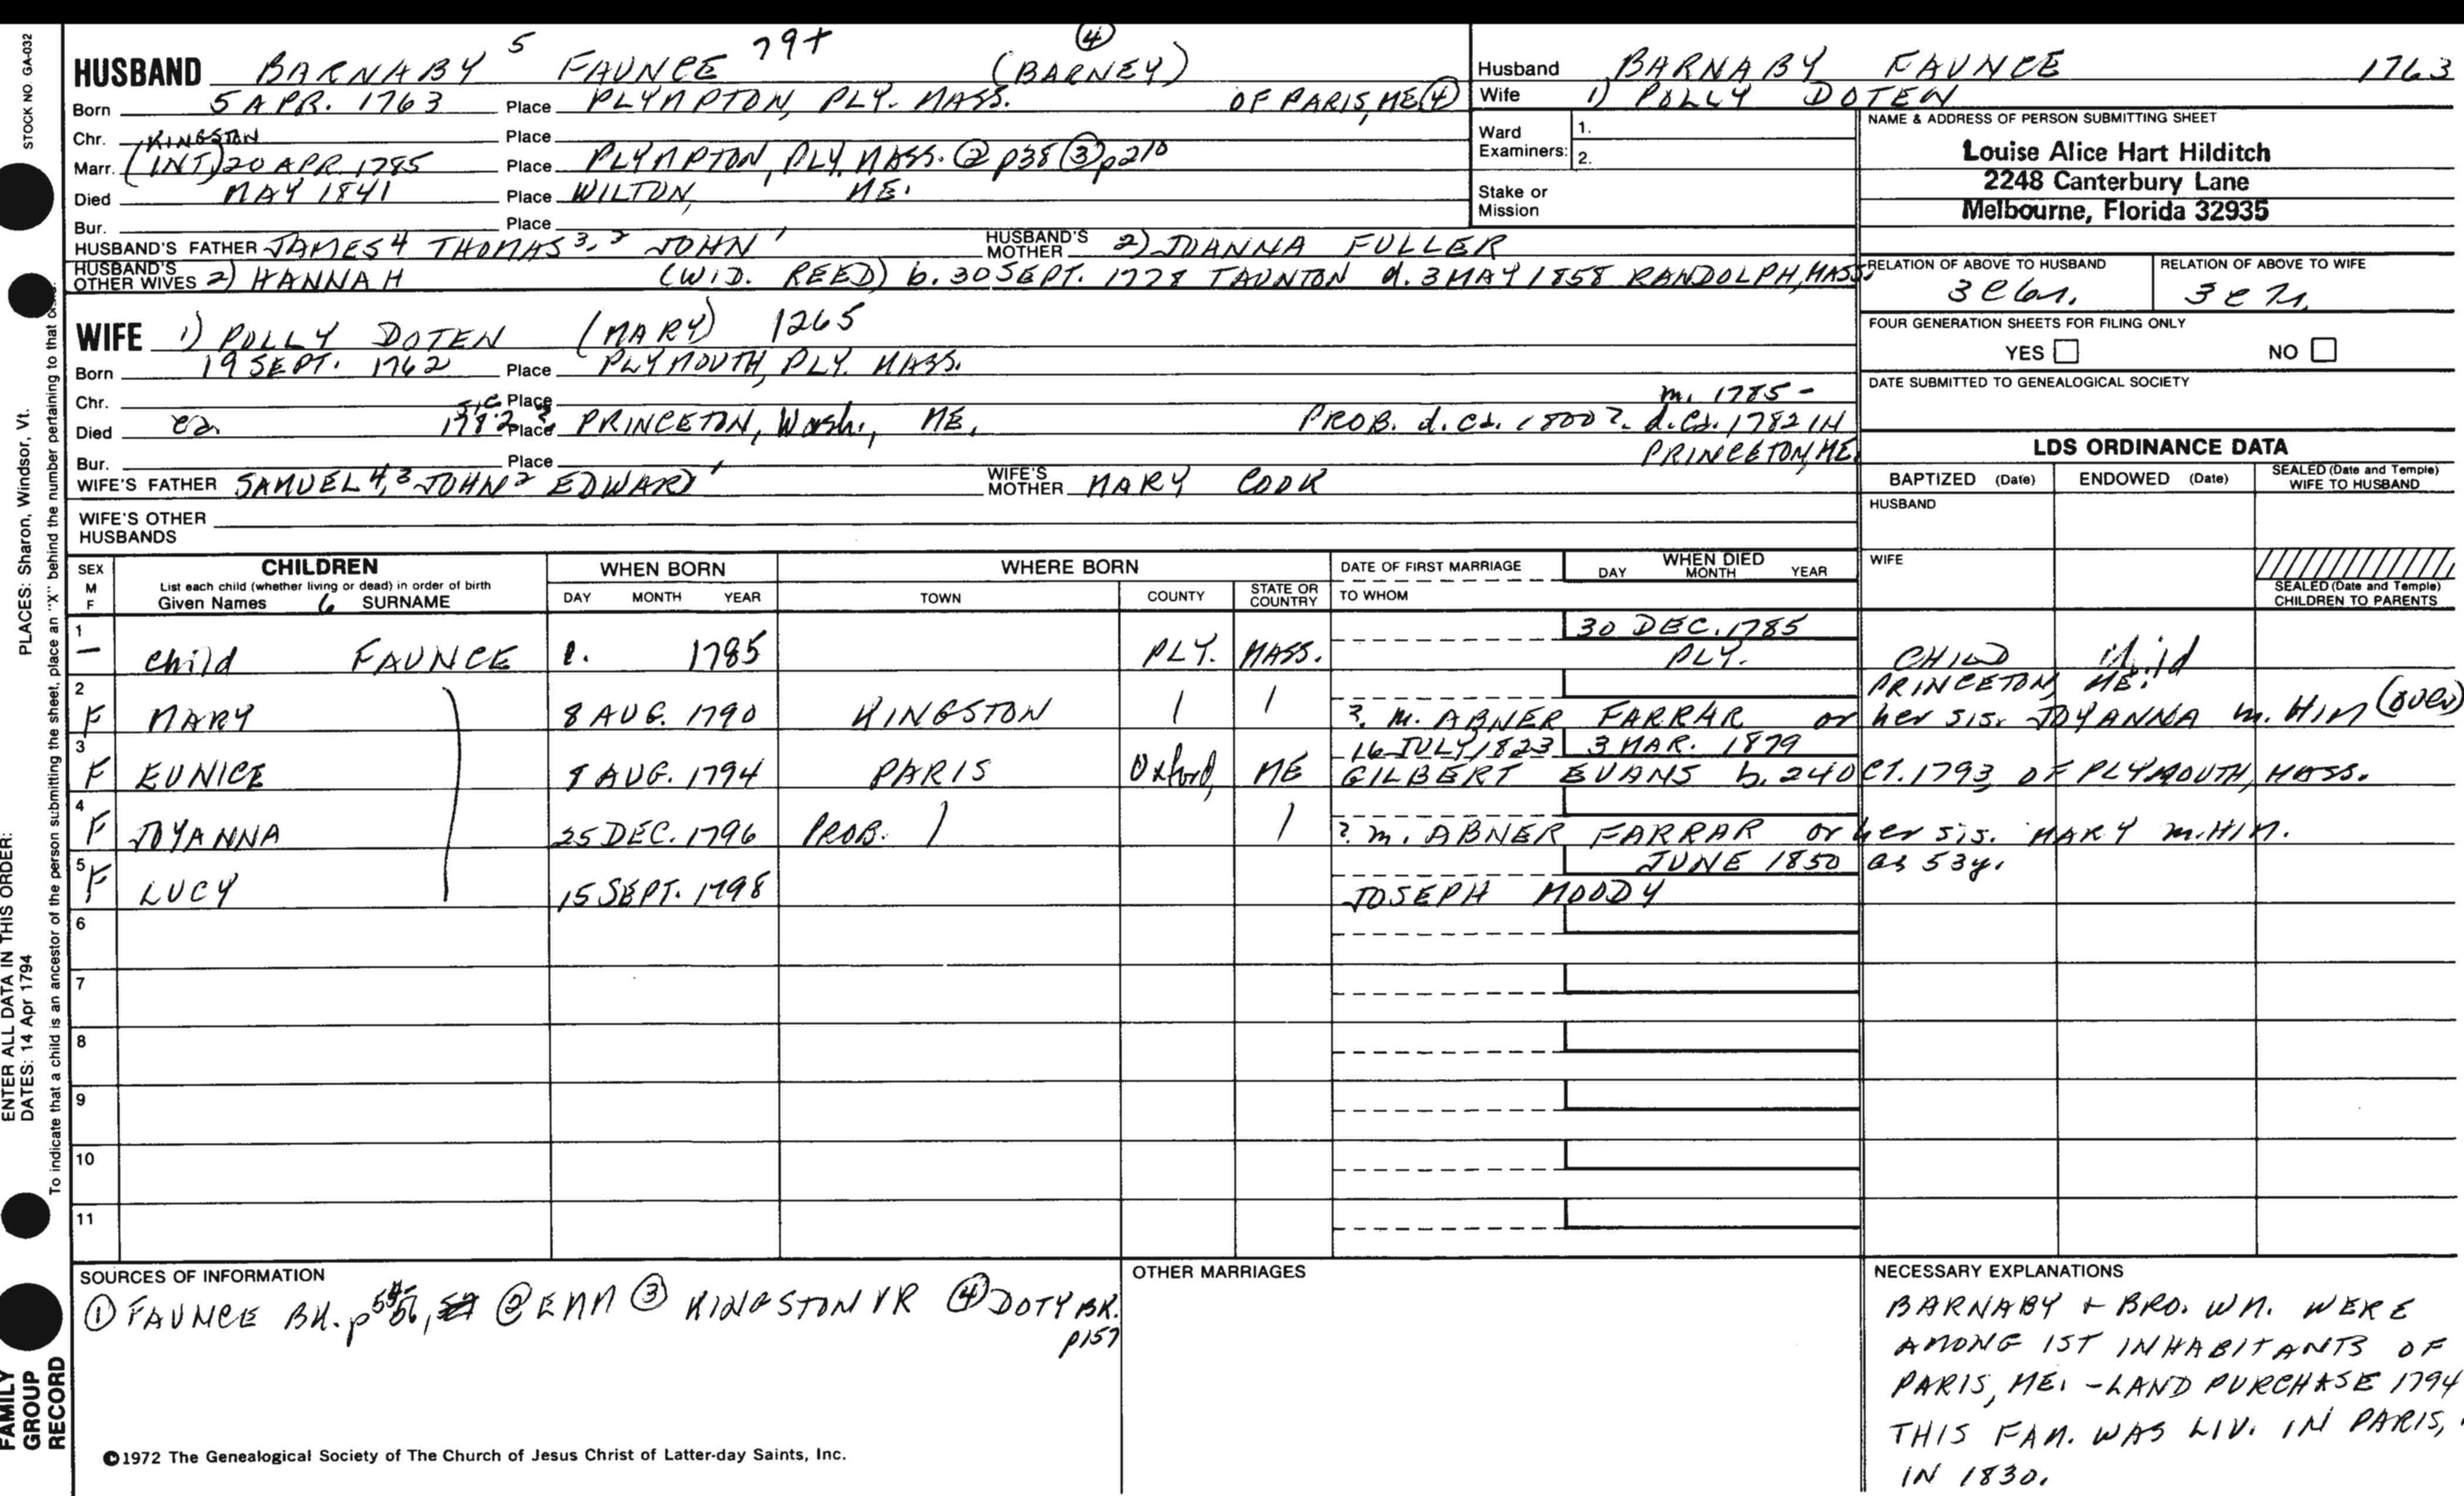 HUSBAND BARNABY 5 FAUNCE 79+ (BARNEY) ④
Born 5 APR. 1763 Place PLYMPTON, PLY. MASS. OF PARIS, ME ④
Chr. KINGSTON Place
Marr. (INT) 20 APR. 1785 Place PLYMPTON, PLY. MASS. ② p38 ③ p210
Died MAY 1841 Place WILTON, ME.
Bur. Place
HUSBAND'S FATHER JAMES 4 THOMAS 3, 2 JOHN 1 HUSBAND'S MOTHER 2) JOANNA FULLER
HUSBAND'S OTHER WIVES 2) HANNAH (WID. REED) b. 30 SEPT. 1778 TAUNTON d. 3 MAY 1858 RANDOLPH, MASS.
WIFE 1) POLLY DOTEN (MARY) 1265
Born 19 SEPT. 1762 Place PLYMOUTH, PLY. MASS.
Chr. Place m. 1785 -
Died ca sic 1782 ? Place PRINCETON, Wash., ME. PROB. d. ca. 1800 ? d. ca. 1782 IN
Bur. Place PRINCETON, ME.
WIFE'S FATHER SAMUEL 4, 3 JOHN 2 EDWARD 1 WIFE'S MOTHER MARY COOK
WIFE'S OTHER HUSBANDS
Husband BARNABY FAUNCE 1763
Wife 1) POLLY DOTEN
Ward Examiners: 1.
2.
Stake or Mission
NAME & ADDRESS OF PERSON SUBMITTING SHEET
Louise Alice Hart Hilditch
2248 Canterbury Lane
Melbourne, Florida 32935
RELATION OF ABOVE TO HUSBAND RELATION OF ABOVE TO WIFE
FOUR GENERATION SHEETS FOR FILING ONLY
YES NO
DATE SUBMITTED TO GENEALOGICAL SOCIETY
LDS ORDINANCE DATA
BAPTIZED (Date) ENDOWED (Date) SEALED (Date and Temple) WIFE TO HUSBAND
HUSBAND
WIFE
SEALED (Date and Temple) CHILDREN TO PARENTS
SEX M F CHILDREN WHEN BORN WHERE BORN DATE OF FIRST MARRIAGE WHEN DIED
List each child (whether living or dead) in order of birth
Given Names 6 SURNAME DAY MONTH YEAR TOWN COUNTY STATE OR COUNTRY TO WHOM DAY MONTH YEAR
1 30 DEC. 1785
— child FAUNCE 1785 PLY. MASS. PLY. CHILD child
2 PRINCETON, ME.
F MARY 8 AUG. 1790 KINGSTON ?. m. ABNER FARRAR or her sis. JOYANNA m. HIM (over)
3 16 JULY 1823 3 MAR. 1879
F EUNICE 8 AUG. 1794 PARIS Oxford, ME GILBERT EVANS b. 24 OCT. 1793 OF PLYMOUTH, MASS.
4
F JOYANNA 25 DEC. 1796 PROB. ? m. ABNER FARRAR or her sis. MARY m. HIM.
5 JUNE 1850 as 53y.
F LUCY 15 SEPT. 1798 JOSEPH MOODY
6
7
8
9
10
11
SOURCES OF INFORMATION
① FAUNCE BK. p 56, ② EMM ③ KINGSTON VR ④ DOTY BK.
p157
OTHER MARRIAGES
NECESSARY EXPLANATIONS
BARNABY + BRO. WM. WERE
AMONG 1ST INHABITANTS OF
PARIS, ME. - LAND PURCHASE 1794
THIS FAM. WAS LIV. IN PARIS,
IN 1830.
©1972 The Genealogical Society of The Church of Jesus Christ of Latter-day Saints, Inc.
STOCK NO. GA-032
PLACES: Sharon, Windsor, Vt.
ENTER ALL DATA IN THIS ORDER:
DATES: 14 Apr 1794
To indicate that a child is an ancestor of the person submitting the sheet, place an "X" behind the number pertaining to that
FAMILY
GROUP
RECORD